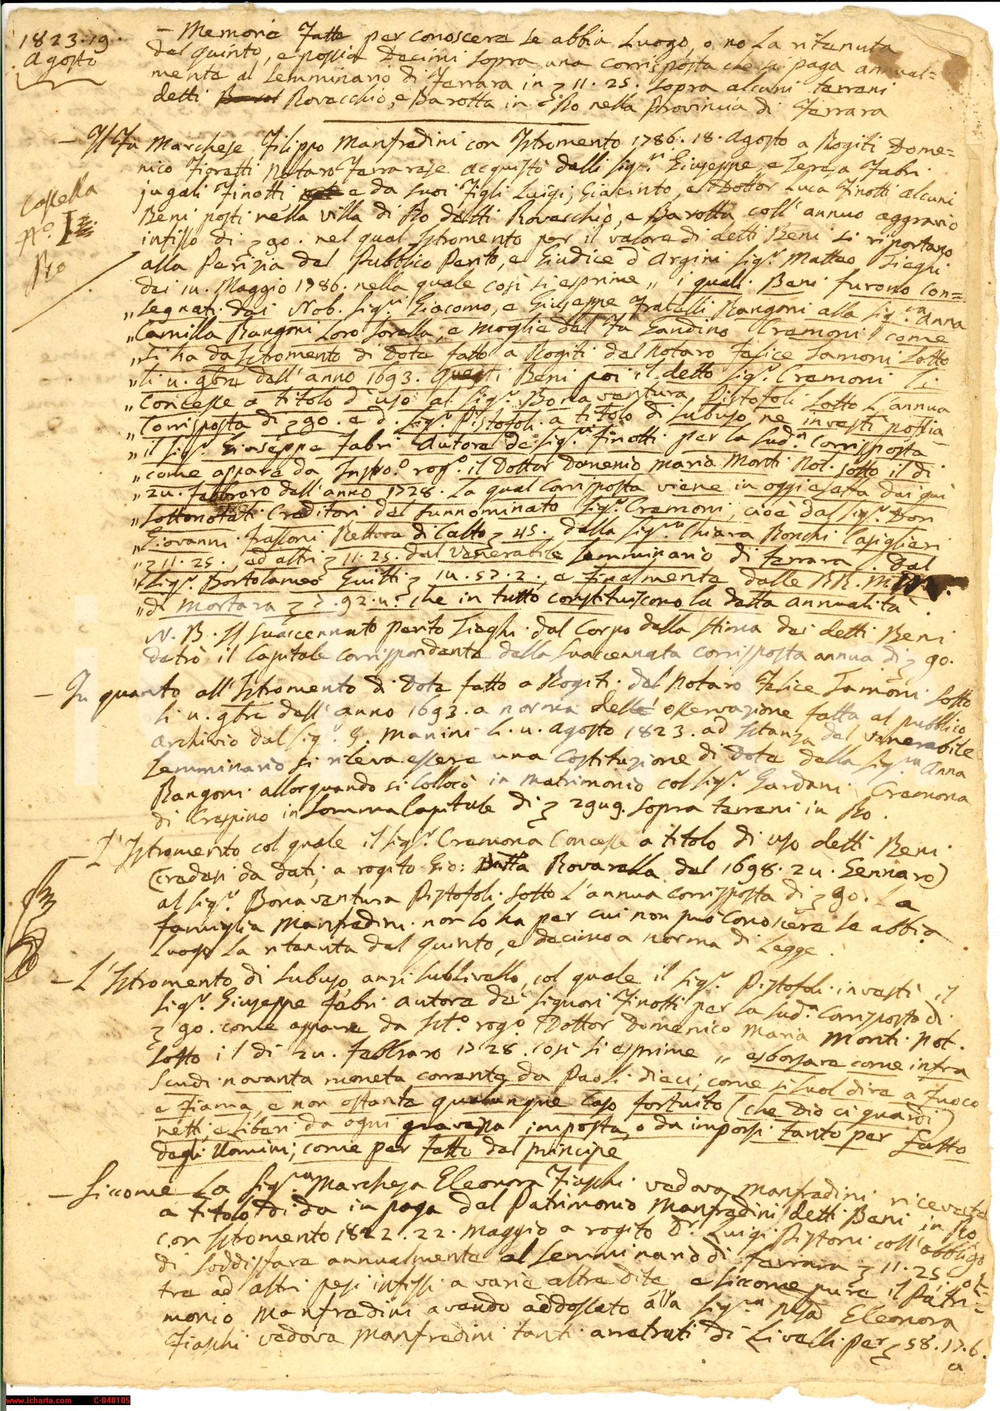 1823.19.
Agosto
- Memoria Fatta per conoscere se abbia Luogo, o no La ritenuta
del quinto, e possia Decimi sopra una corrisposta che si paga annual=
mente al Semminario di Ferrara in 11.25. sopra alcuni terreni
detti Rovacchio, e Barotta in Rò nella Provincia di Ferrara
- Il Fù Marchese Filippo Manfredini con Istromento 1786.18. Agosto a Rogiti Dome=
nico Ficratti Notaro Ferrarese acquistò dalli Sig.ri Giuseppe, e Teresa Fabri
jugali Finotti e da suoi Figli Luigi, Giacinto, e Dottor Luca Finotti alcuni
Beni posti nella villa di Rò detti Rovacchio, e Barotta coll' annuo aggravio
infisso di 90. nel qual Istromento per il valore di detti Beni si riportano
alla Perizia del Pubblico Perito, e Giudice d'Argini Sig.r Matteo Tieghi
dei Maggio 1786. nella quale così si esprime „ i quali Beni furono con=
„ segnati dai Nob. Sig.ri Giacomo, e Giuseppe Fratelli Rangoni alla Sig.ra Anna
„ Camilla Rangoni Loro Sorella, e moglie del Fù Gandino Cremoni come
„ si ha da Istromento di Dote fatto a Rogiti del Notaro Felice Lamoni sotto
„ li 9bre dell' anno 1693. Questi Beni poi il detto Sig.r Cremoni li
„ Concesse a titolo d'uso al Sig.r Bonaventura Pistofoli sotto l'annua
„ Corrisposta di 90. e d.o Sig.r Pistofoli a titolo di subuso ne investì possia
„ il Sig.r Giuseppe Fabri Autore de Sig.ri Finotti per la sud.a corrisposta
„ come appare da rog.o il Dottor Domenico maria Monti Not. sotto il di
„ febbraro dell'anno 1728. La qual Corrisposta viene in oggi esatta dai quì
„ sottonotati Creditori del funnominato Sig.r Cremoni, cioè dal Sig.r Don
„ Giovanni Frassoni Rettore di Calto 45. dalla Sig.ra Chiara Ronchi
„ 11.25., ed altri 11.25. dal Venerabile Semminario di Ferrara. Dal
„ Sig.r Bortolameo Guitti e finalmente dalle RR. M
„ di Mortara che in tutto constituiscono la detta annualità.
N. B. Il suaccennato perito Tieghi dal Corpo della stima dei detti Beni
detrò il Capitale corrispondente della suaccennata corrisposta annua di 90.
- In quanto all' Istromento di Dote fatto a Rogiti del Notaro Felice Lamoni sotto
li 9bre dell' anno 1693. a norma dell' osservazione fatta al pubblico
Archivio dal Sig.r G. Manini Agosto 1823. ad Istanza del Venerabile
Semminario si rileva essere una Costituzione di Dote della Sig.ra Anna
Rangoni allorquando si collocò in matrimonio col Sig.r Cremona
di Crespino in Somma Capitale di sopra terreni in Rò.
- L'Istromento col quale il Sig.r Cremona Concesse a titolo di uso detti Beni
(credesi da dati, a rogito Gio: Batta Rovarella del 1698. Gennaro)
al Sig.r Bonaventura Pistofoli sotto l'annua corrisposta di 90. La
famiglia Manfredini non lo ha per cui non può conoscere se abbia
Luogo La ritenuta del quinto, e decimo a norma di Legge.
- L'Istromento di Subuso, anzi sublivello, col quale il Sig.r Pistofoli investì il
Sig.r Giuseppe Fabri autore dei Signori Finotti per la sud.a Corrisposta di
90. come appare da Ist.o rog.o Dottor Domenico Maria Monti Not.
sotto il di febbraro 1728. così si esprime „ esborsare come infra
Scudi novanta moneta corrente da Paoli dieci, come si suol dire a Fuoco
e Fiama, e non ostante qualunque caso fortuito (che Dio ci guardi)
netti, e Liberi da ogni gravezza imposta, o da imporsi tanto per fatto
degli Uomini, come per fatto del principe
- Siccome La Sig.ra Marchesa Eleonora Fiaschi vedova Manfredini ricevette
a titolo di da in paga dal Patrimonio Manfredini detti Beni in Rò
con Istromento 1822.22. Maggio a rogito Dr. Luigi Pistorni coll' obbligo
di soddisfare annualmente al Semminario di Ferrara 11.25. ol=
tre ad altri pesi infissi a varie altre dite, e siccome pure il Patri=
monio Manfredini avendo addossato alla Sig.ra Eleonora
Fiaschi vedova Manfredini tanti arretrati di Livelli per 58.17.6.
a
Casella
N.o I
Rò
www.icharta.com C-040105